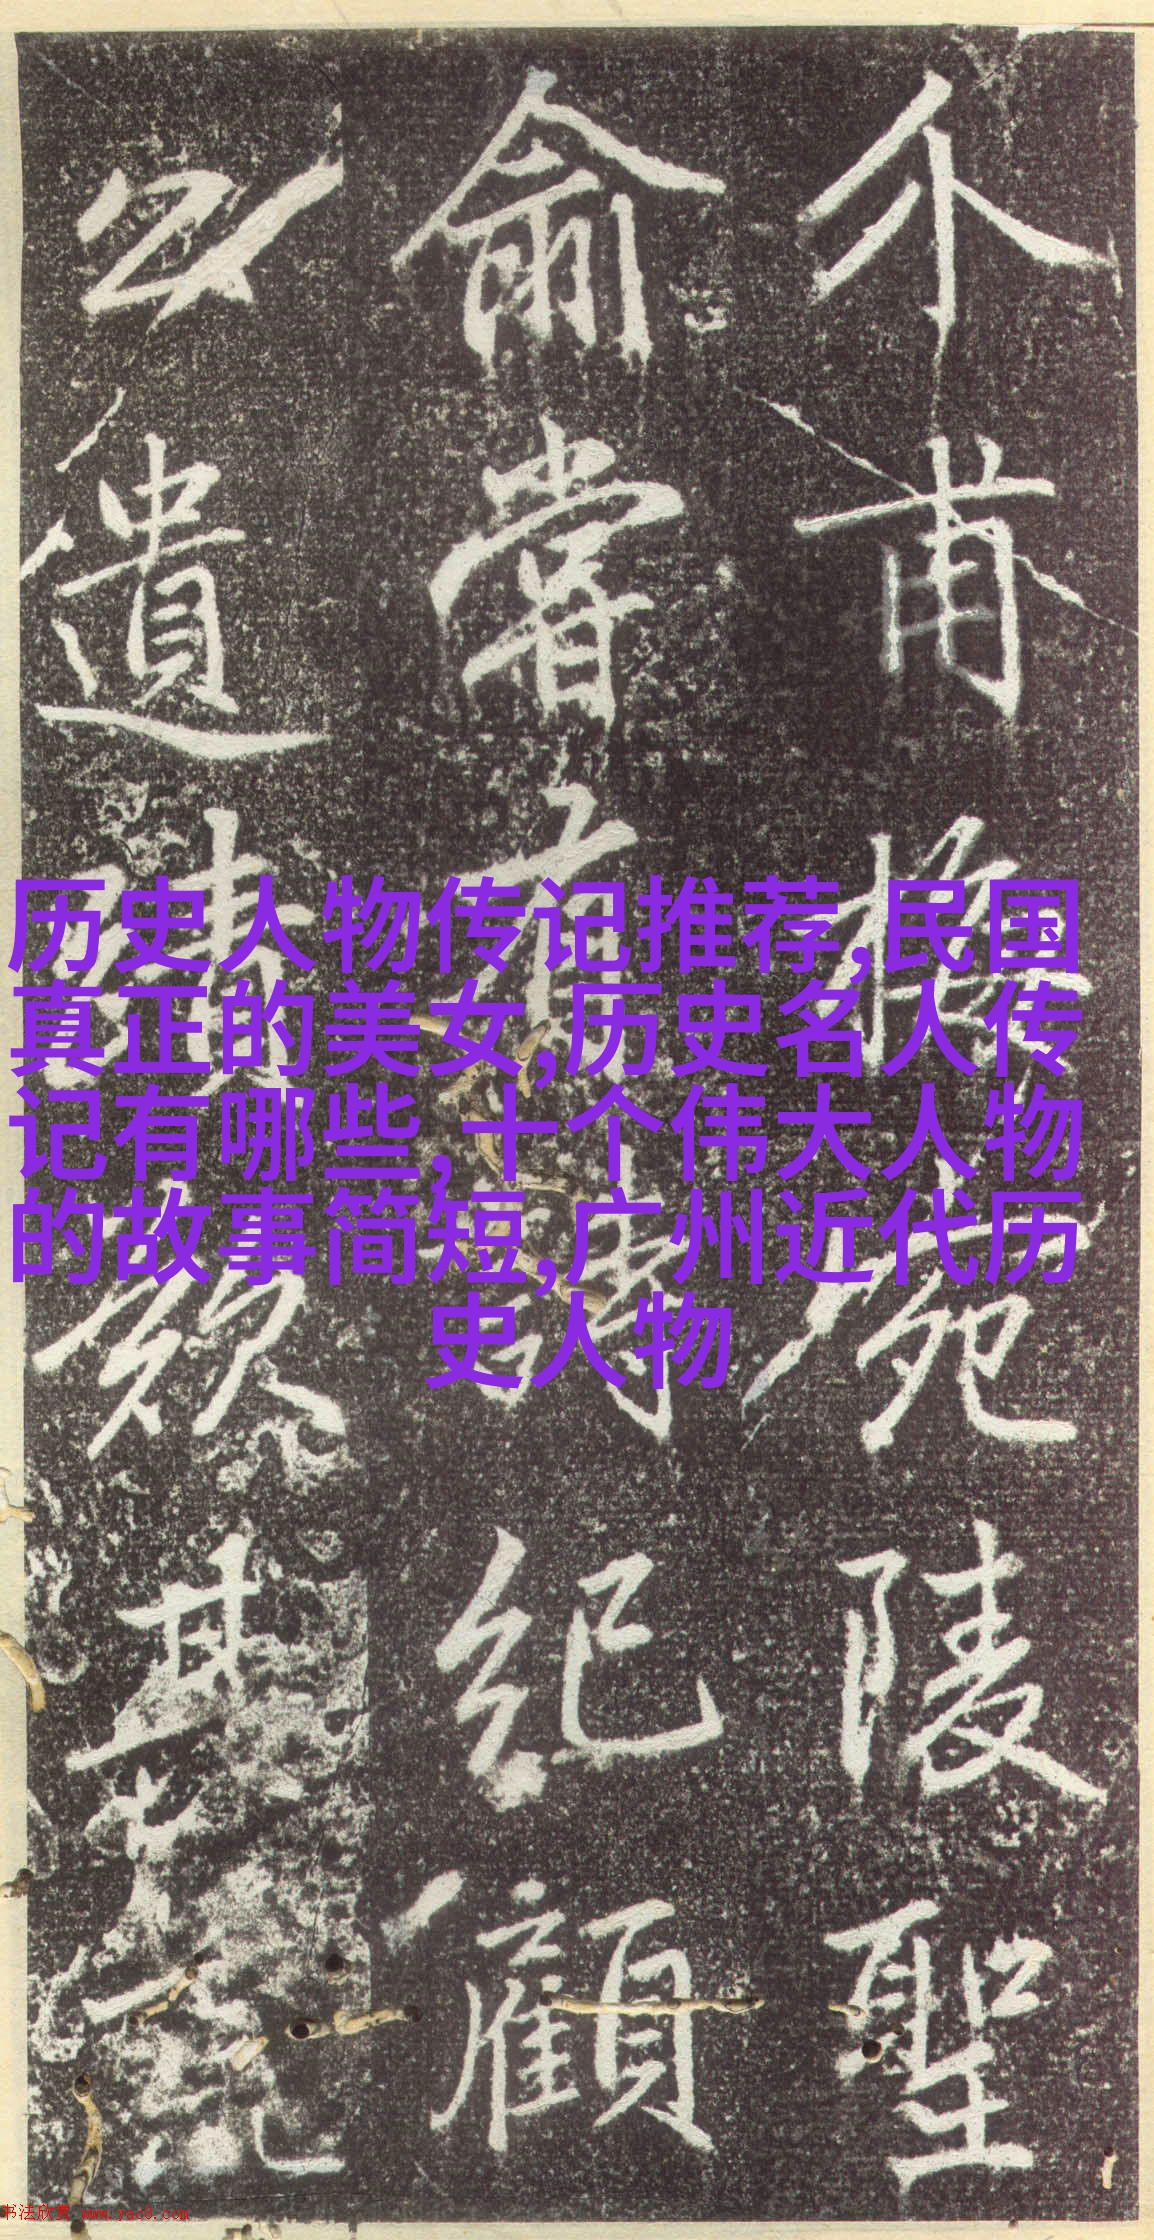 介甫梅宛陵聖
俞嘗有詩紀顧
公遺其
历史人物传记推荐,民国
真正的美女,历史名人传
记有哪些,十个伟大人物
的故事简短,广州近代历
史人物
书法欣赏 www.yac8.com